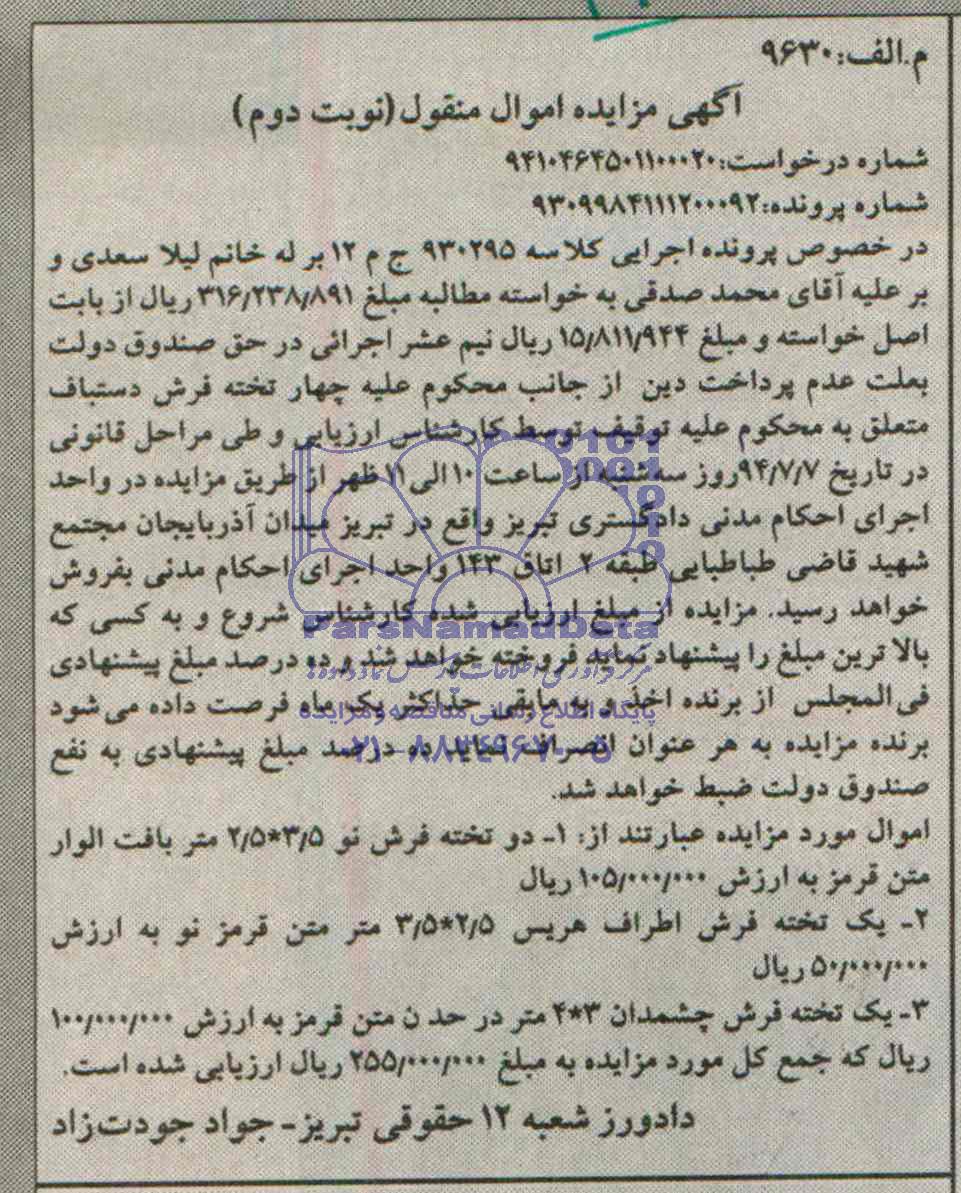 م.الف:۹۶۳۰
آگهی مزایده اموال منقول(نوبت دوم)
شماره درخواست:۹۴۱۰۴۶۴۵۰۱۱۰۰۰۲۰
شماره پرونده:۹۳۰۹۹۸۴۱۱۱۲۰۰۰۹۲
در خصوص پرونده اجرایی کلاسه ۹۳۰۲۹۵ ج م ۱۲ بر له خانم لیلا سعدی و
بر علیه آقای محمد صدقی به خواسته مطالبه مبلغ ۳۱۶/۲۳۸/۸۹۱ ریال از بابت
اصل خواسته و مبلغ ۱۵/۸۱۱/۹۴۴ ریال نیم عشر اجرائی در حق صندوق دولت
بعلت عدم پرداخت دین از جانب محکوم علیه چهار تخته فرش دستباف
متعلق به محکوم علیه توقیف توسط کارشناس ارزیابی و طی مراحل قانونی
در تاریخ ۹۴/۷/۷روز سه‌شنبه از ساعت ۱۰ الی ۱۱ ظهر از طریق مزایده در واحد
اجرای احکام مدنی دادگستری تبریز واقع در تبریز میدان آذربایجان مجتمع
شهید قاضی طباطبایی طبقه ۲ اتاق ۱۴۳ واحد اجرای احکام مدنی بفروش
خواهد رسید. مزایده از مبلغ ارزیابی شده کارشناسی شروع و به کسی که
بالا ترین مبلغ را پیشنهاد نماید فروخته خواهد شد و ده درصد مبلغ پیشنهادی
فی‌المجلس از برنده اخذ و به مابقی حداکثر یک ماه فرصت داده می‌شود
برنده مزایده به هر عنوان انصراف نماید ده درصد مبلغ پیشنهادی به نفع
صندوق دولت ضبط خواهد شد.
اموال مورد مزایده عبارتند از: ۱- دو تخته فرش نو ۳/۵*۲/۵ متر بافت الوار
متن قرمز به ارزش ۱۰۵/۰۰۰/۰۰۰ ریال
۲- یک تخته فرش اطراف هریس ۲/۵*۳/۵ متر متن قرمز نو به ارزش
۵۰/۰۰۰/۰۰۰ ریال
۳- یک تخته فرش چشمدان ۳*۴ متر در حد ن متن قرمز به ارزش ۱۰۰/۰۰۰/۰۰۰
ریال که جمع کل مورد مزایده به مبلغ ۲۵۵/۰۰۰/۰۰۰ ریال ارزیابی شده است.
دادورز شعبه ۱۲ حقوقی تبریز- جواد جودت‌زاد
ParsNamadData
پایگاه اطلاع رسانی مناقصه و مزایده
۰۲۱-۸۸۳۴۹۶۷۰-۵